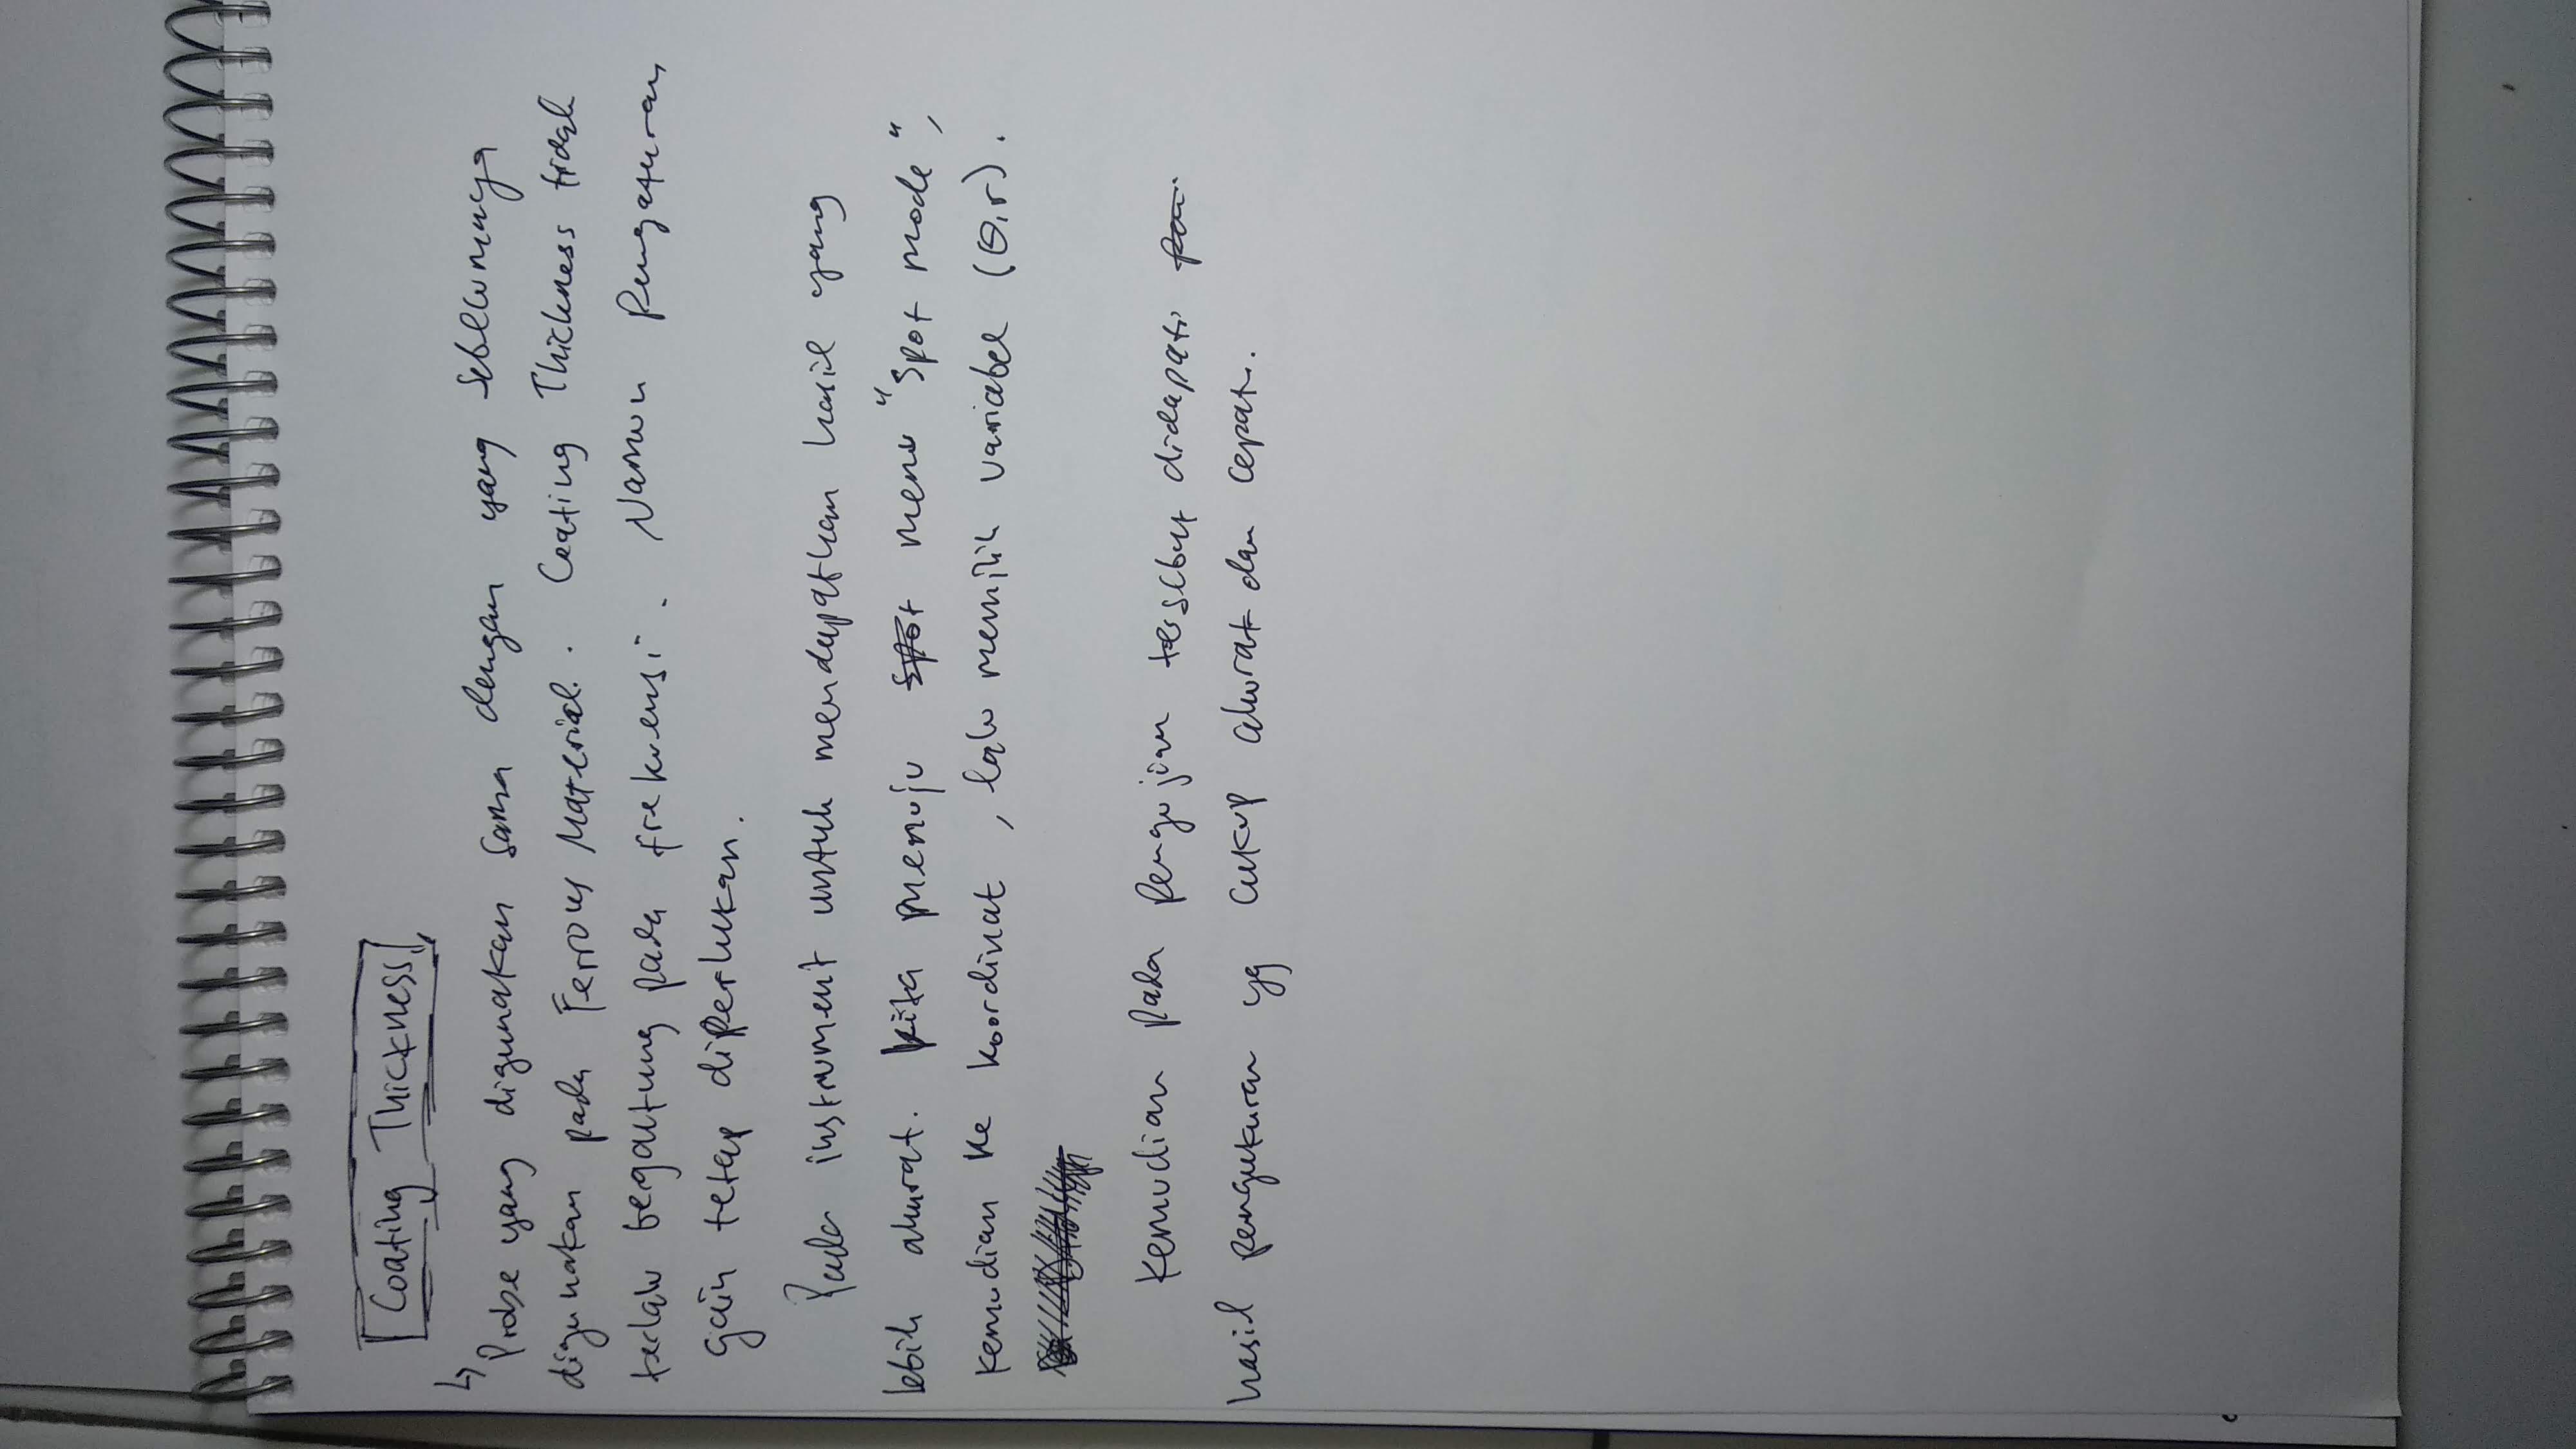 Coating Thickness
↳ Probe yang digunakan sama dengan yang sebelumnya
digunakan pada Ferrous Material. Coating Thickness tidak
terlalu bergantung pada frekuensi. Namun pengaturan
gain tetap diperlukan.
Pada instrument untuk mendapatkan hasil yang
lebih akurat. Kita menuju spot menu "Spot mode",
kemudian ke koordinat, lalu memilih variabel (θ,r).
Kemudian pada pengujian tersebut didapati
hasil pengukuran yg cukup akurat dan cepat.